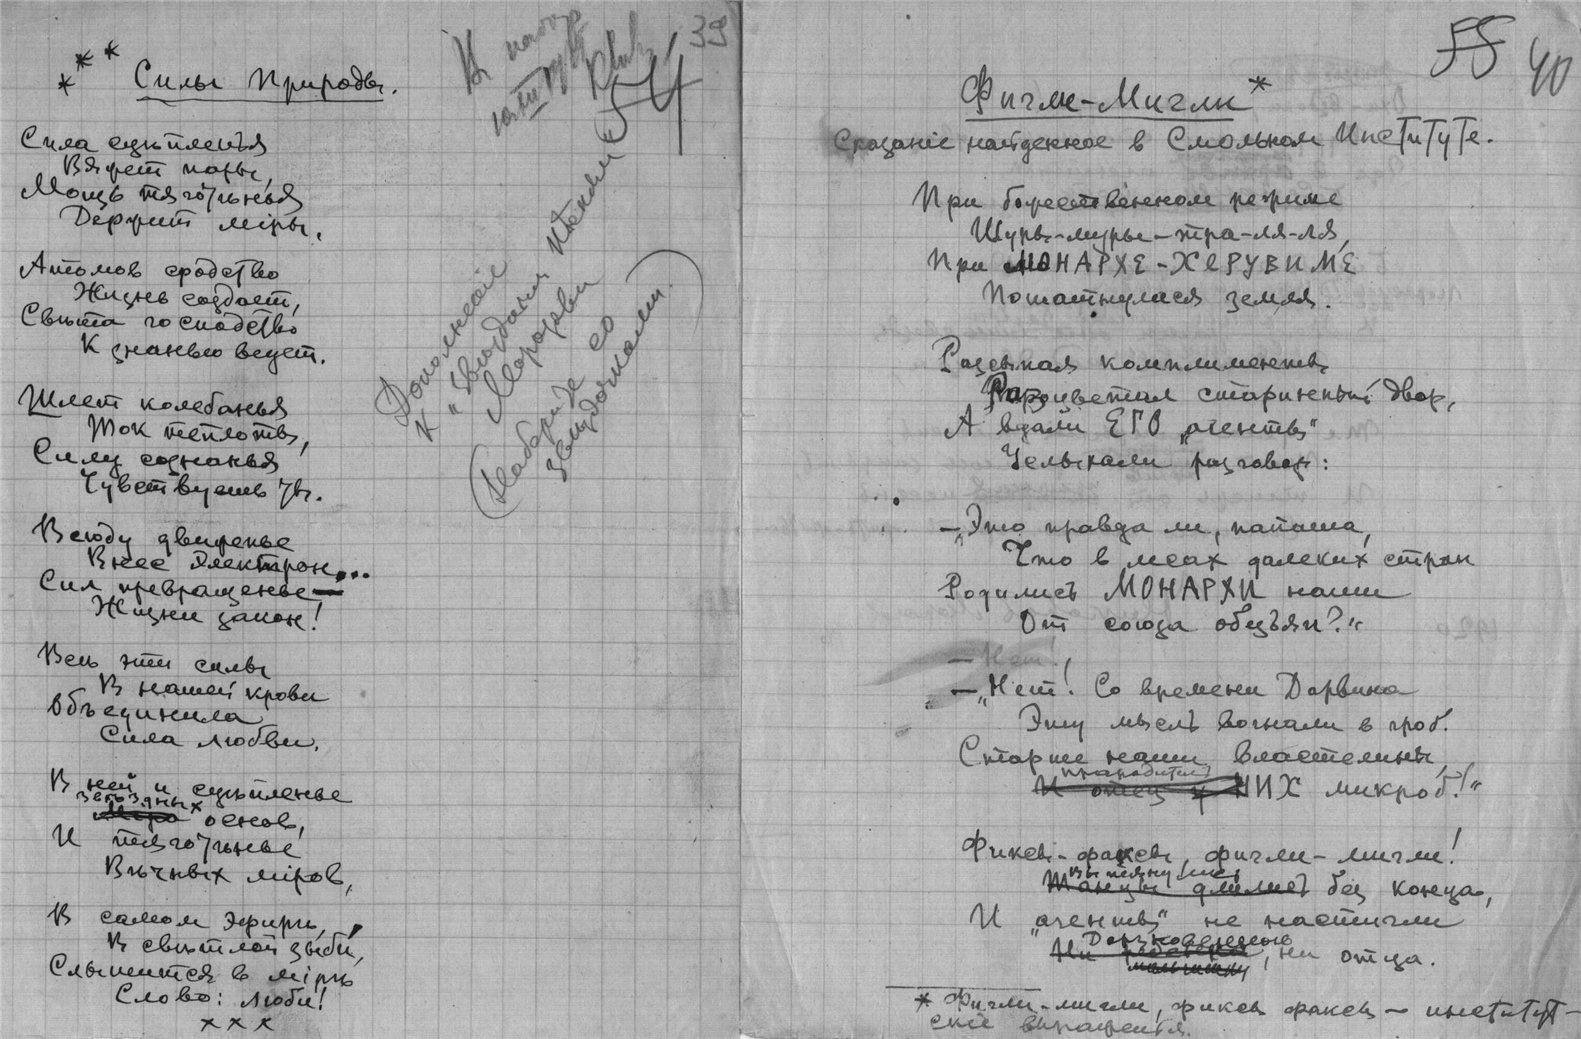 39
54
В набор
* * * Силы Природы.
Сила сцѣпленья
Вяжет пары,
Мощь тяготѣнья
Держит міры.
Атомов сродство
Жизнь создает,
Свѣта господство
К знанью ведет.
Шлет колебанья
Ток теплоты,
Силу сознанья
Чувствуешь ты.
Всюду движенье
Внес электрон...
Сил превращенье —
Жизни закон!
Все эти силы
В нашей крови
Объединила
Сила любви.
В ней и сцѣпленье
звѣздных
Міра основ,
И тяготѣнье
Вѣчных міров,
В самом эфирѣ,
В свѣтлой зыби,
Слышится в мірѣ
Слово: люби!
× × ×
Дополненіе
к "Звѣздным Пѣсням"
Морозова
(Наберите со
звѣздочками)
55 40
Фигли-Мигли *
Сказаніе найденное в Смольном Институте.
При божественном режиме
Шуры-муры-тра-ля-ля,
При МОНАРХЕ-ХЕРУВИМЕ
Пошатнулася земля.
Рассыпая комплименты
Расцветал старинный двор,
А вдали ЕГО „агенты"
Услыхали разговор:
— „Это правда ли, папаша,
Что в лесах далеких стран
Родились МОНАРХИ наши
От союза обезьян?"
— Нет!
— „Нет! Со времени Дарвина
Эту мысль вогнали в гроб.
Старше наши властелины,
прародитель
И отец у НИХ микроб!"
Фиксы-факсы, фигли-мигли!
Вытянулись
Танцы длились без конца,
И „агенты" не настигли
Ни ребенка, ни отца.
* Фигли-мигли, фиксы факсы — институт-
скіе выраженія.